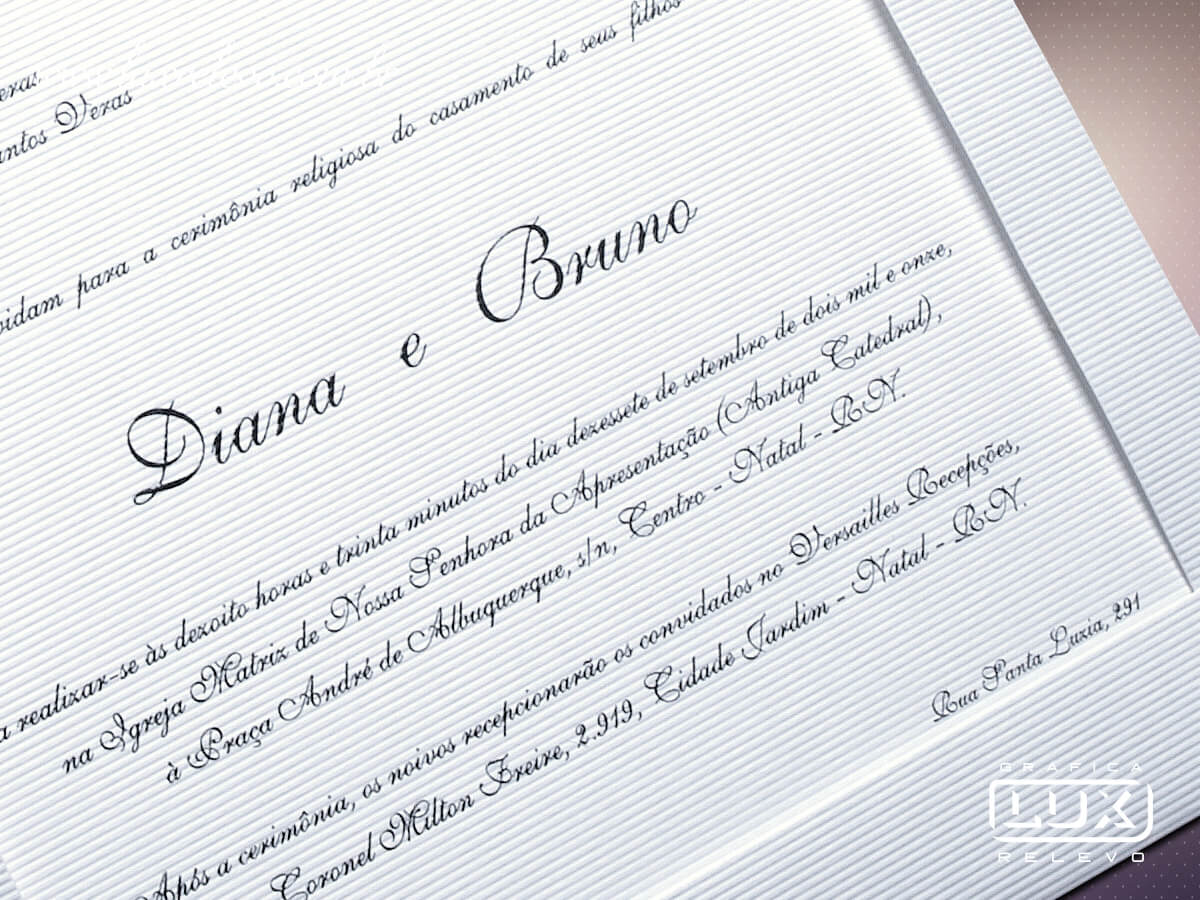 eras
antos Veras
vidam para a cerimônia religiosa do casamento de seus filhos
Diana e Bruno
a realizar-se às dezoito horas e trinta minutos do dia dezessete de setembro de dois mil e onze,
na Igreja Matriz de Nossa Senhora da Apresentação (Antiga Catedral),
à Praça André de Albuquerque, s/n, Centro - Natal - RN.
Após a cerimônia, os noivos recepcionarão os convidados no Versailles Recepções,
Coronel Milton Freire, 2.919, Cidade Jardim - Natal - RN.
Rua Santa Luzia, 291
GRAFICA
LUX
RELEVO